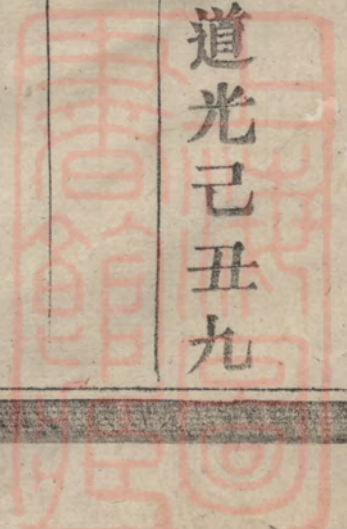 道光己丑九